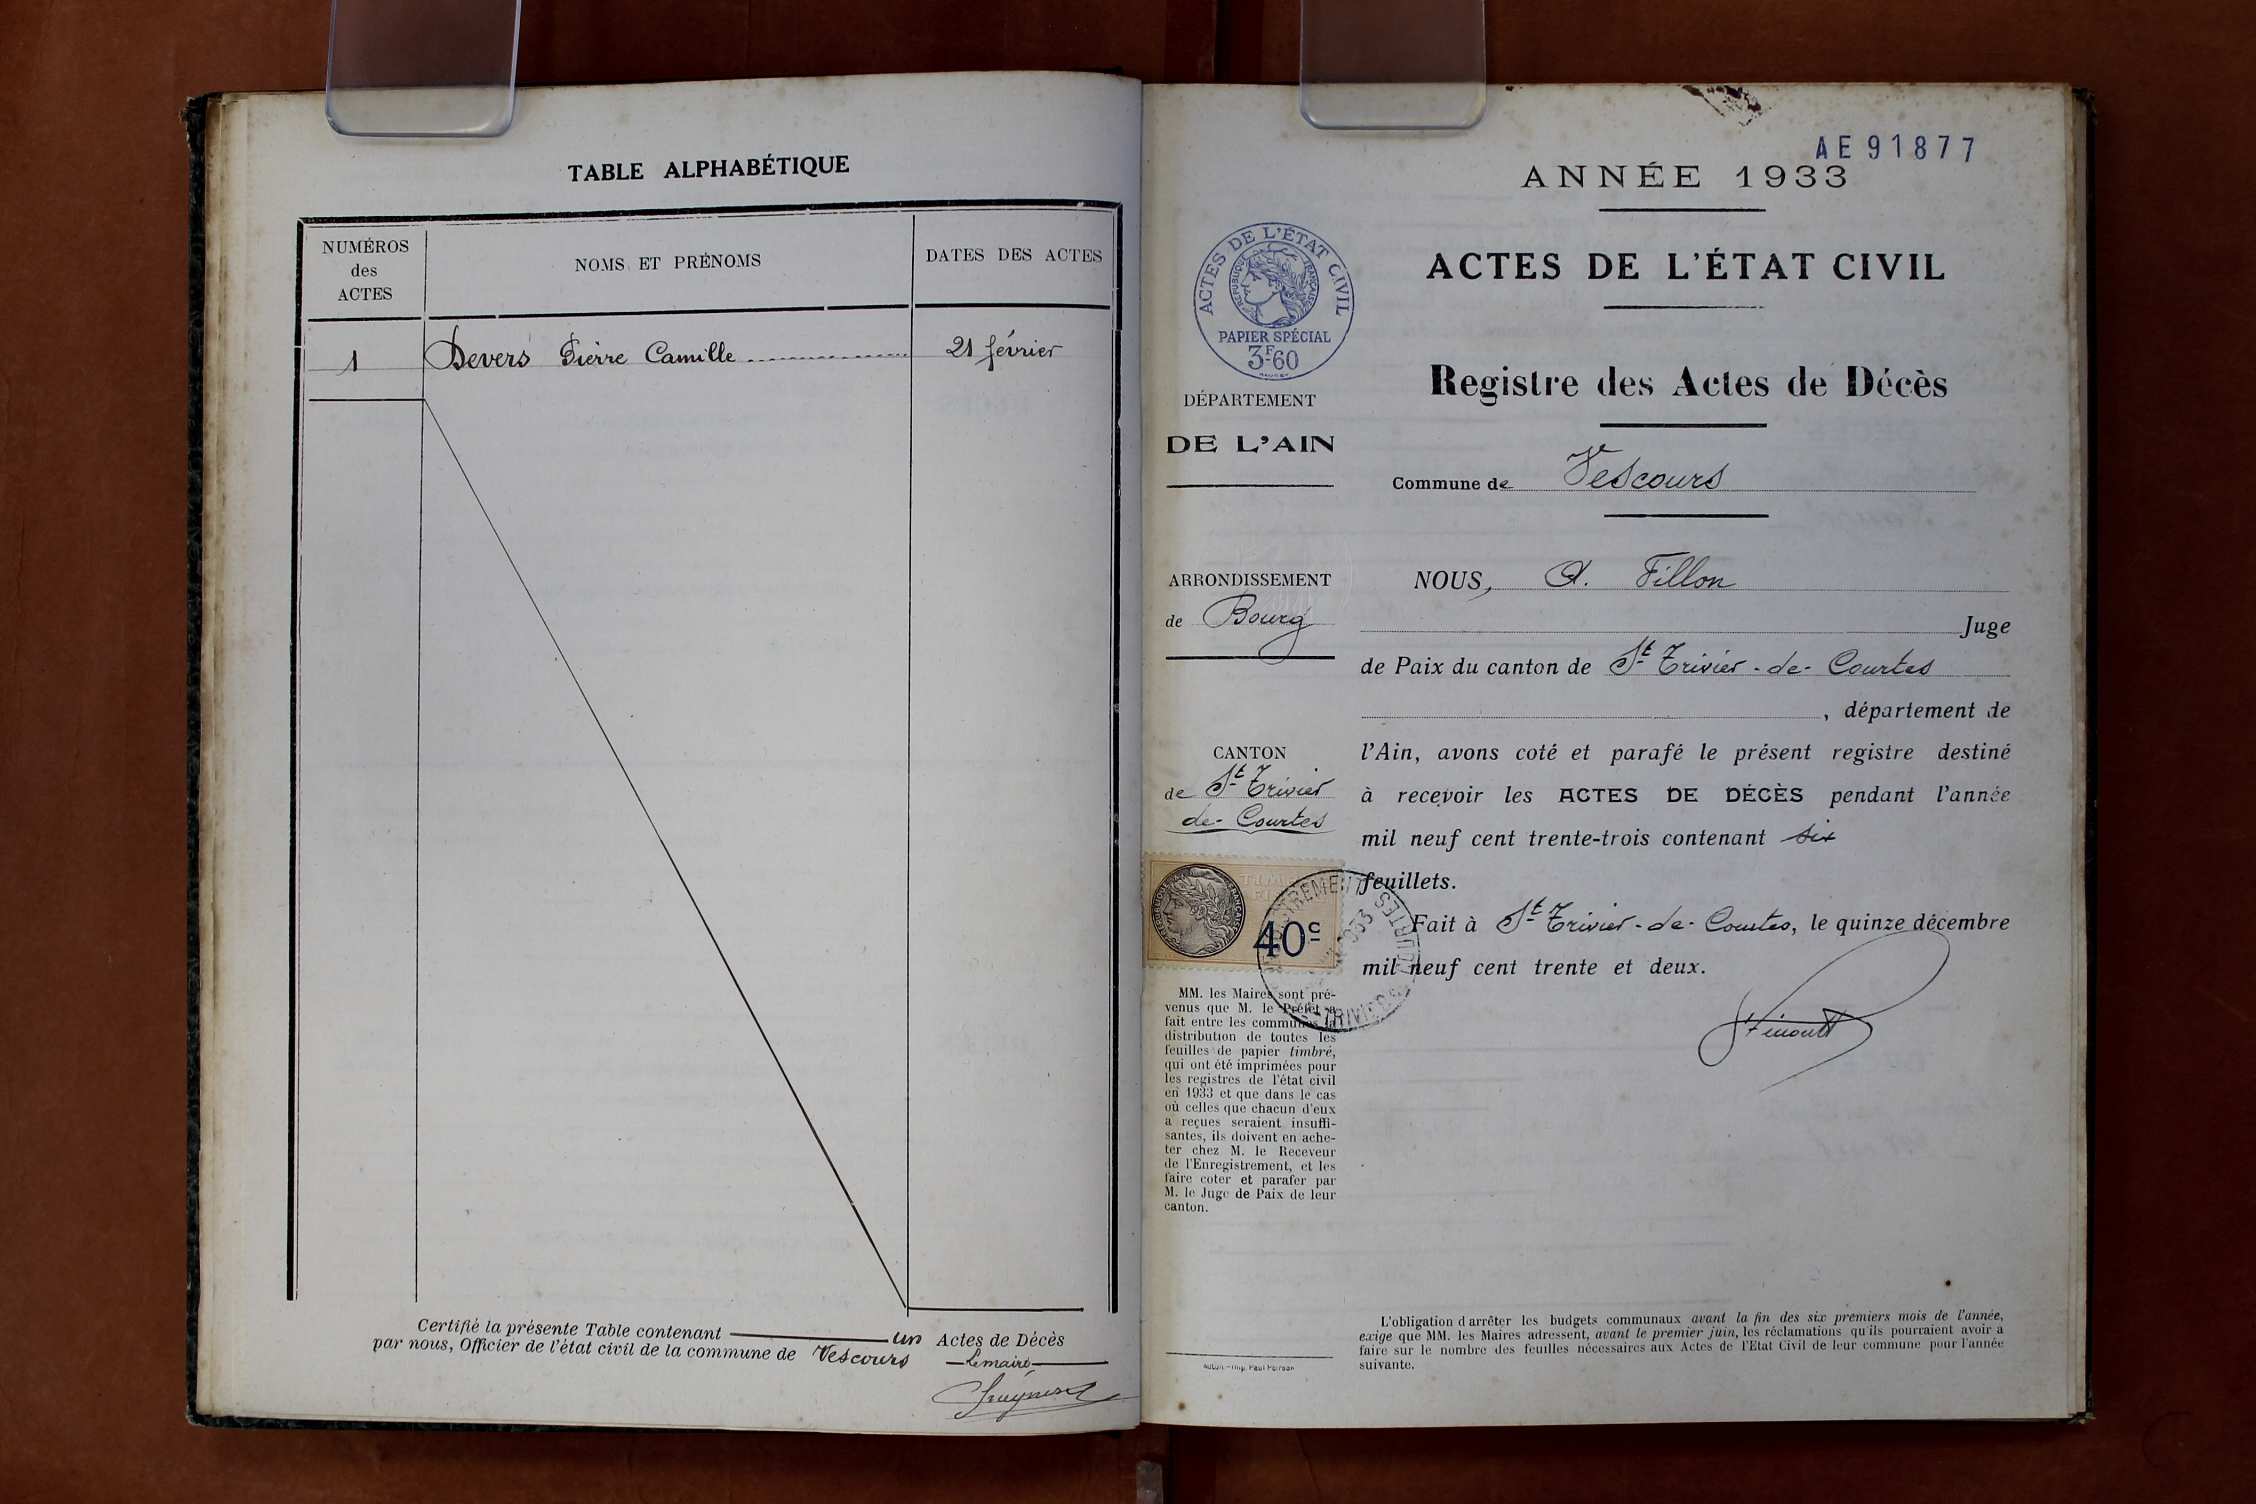 TABLE ALPHABÉTIQUE
NUMÉROS
des
ACTES
NOMS ET PRÉNOMS
DATES DES ACTES
1
Devers Pierre Camille
21 février
Certifié la présente Table contenant un Actes de Décès
par nous, Officier de l'état civil de la commune de Vescours
Le maire
AE91877
ANNÉE 1933
ACTES DE L'ÉTAT CIVIL
RÉPUBLIQUE FRANÇAISE
PAPIER SPÉCIAL
3F60
ACTES DE L'ÉTAT CIVIL
Registre des Actes de Décès
DÉPARTEMENT
DE L'AIN
Commune de Vescours
ARRONDISSEMENT
de Bourg
NOUS, A. Fillon
Juge
de Paix du canton de St Trivier-de-Courtes
, département de
l'Ain, avons coté et parafé le présent registre destiné
à recevoir les ACTES DE DÉCÈS pendant l'année
mil neuf cent trente-trois contenant six
feuillets.
Fait à St Trivier-de-Courtes, le quinze décembre
mil neuf cent trente et deux.
CANTON
de St Trivier
de-Courtes
40c
MM. les Maires sont pré-
venus que M. le Préfet a
fait entre les communes la
distribution de toutes les
feuilles de papier timbré,
qui ont été imprimées pour
les registres de l'état civil
en 1933 et que dans le cas
où celles que chacun d'eux
a reçues seraient insuffi-
santes, ils doivent en ache-
ter chez M. le Receveur
de l'Enregistrement, et les
faire coter et parafer par
M. le Juge de Paix de leur
canton.
L'obligation d'arrêter les budgets communaux avant la fin des six premiers mois de l'année,
exige que MM. les Maires adressent, avant le premier juin, les réclamations qu'ils pourraient avoir à
faire sur le nombre des feuilles nécessaires aux Actes de l'Etat Civil de leur commune pour l'année
suivante.